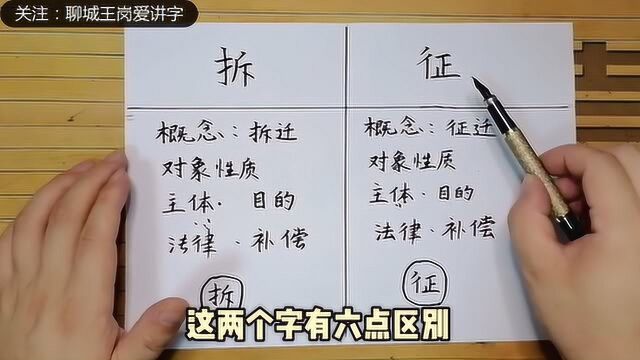 关注：聊城王岗爱讲字
拆
征
概念：拆迁
对象性质
主体·目的
法律·补偿
拆
概念：征迁
对象性质
主体·目的
法律·补偿
征
这两个字有六点区别